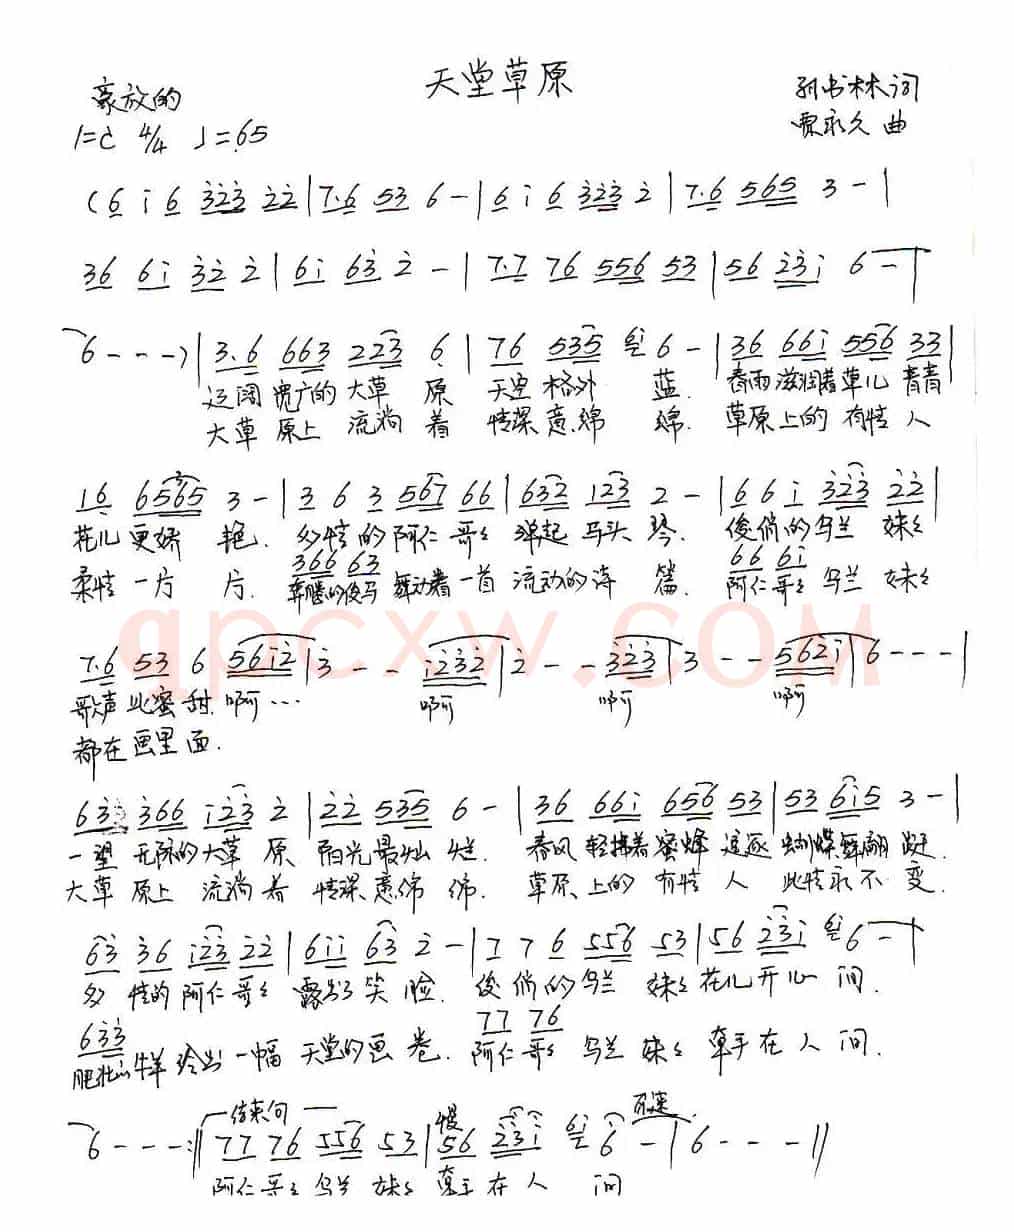 天堂草原
豪放的
孙书林词
1=C 4/4 ♩=65
贾永久 曲
(6 i 6 323 22 | 7·6 53 6 - | 6 i 6 323 2 | 7·6 565 3 - |
36 6i 32 2 | 6i 63 2 - | 7·7 76 556 53 | 56 23i 6 - |
6 - - - ) | 3·6 663 223 6 | 76 535 6i 6 - | 36 66i 556 33 |
辽阔 宽广的 大草 原 天空 格外 蓝. 春雨 滋润着 草儿 青青
大草 原上 流淌 着 情深 意绵 绵. 草原 上的 有情 人
16 6565 3 - | 3 6 3 567 66 | 632 123 2 - | 6 6 i 323 22 |
花儿 更娇 艳. 多情的 阿仁 哥哥 弹起 马头 琴. 俊俏的 乌兰 妹妹
366 63
66 6i
柔情 一片 片. 奔腾的骏马 舞动着 一首 流动的诗 篇. 阿仁 哥哥 乌兰 妹妹
7·6 53 6 56i2 | 3 - - i232 | 2 - - 323 | 3 - - 562i | 6 - - - |
歌声 比蜜 甜. 啊… 啊 啊 啊
都在 画里 面.
qpcxw.com
633 366 i23 2 | 22 535 6 - | 36 66i 656 53 | 53 6i5 3 - |
一望 无际的 大草 原 阳光 最灿 烂. 春风 轻拂着 蜜蜂 追逐 蝴蝶 舞翩 跹.
大草 原上 流淌 着 情深 意绵 绵. 草原 上的 有情 人 此情 永不 变.
63 36 i23 22 | 6ii 63 2 - | 7 7 6 556 53 | 56 23i 6i 6 - |
多 情的 阿仁 哥哥 露出了 笑 脸. 俊 俏的 乌兰 妹妹 花儿 开心 间.
633
77 76
肥壮的 牛羊 绘出 一幅 天堂的 画 卷. 阿仁 哥哥 乌兰 妹妹 牵手 在人 间.
结束句
慢
6 - - - :‖ 77 76 556 53 | 56 23i 6i 6 - | 6 - - - ‖
阿仁 哥哥 乌兰 妹妹 牵手 在人 间